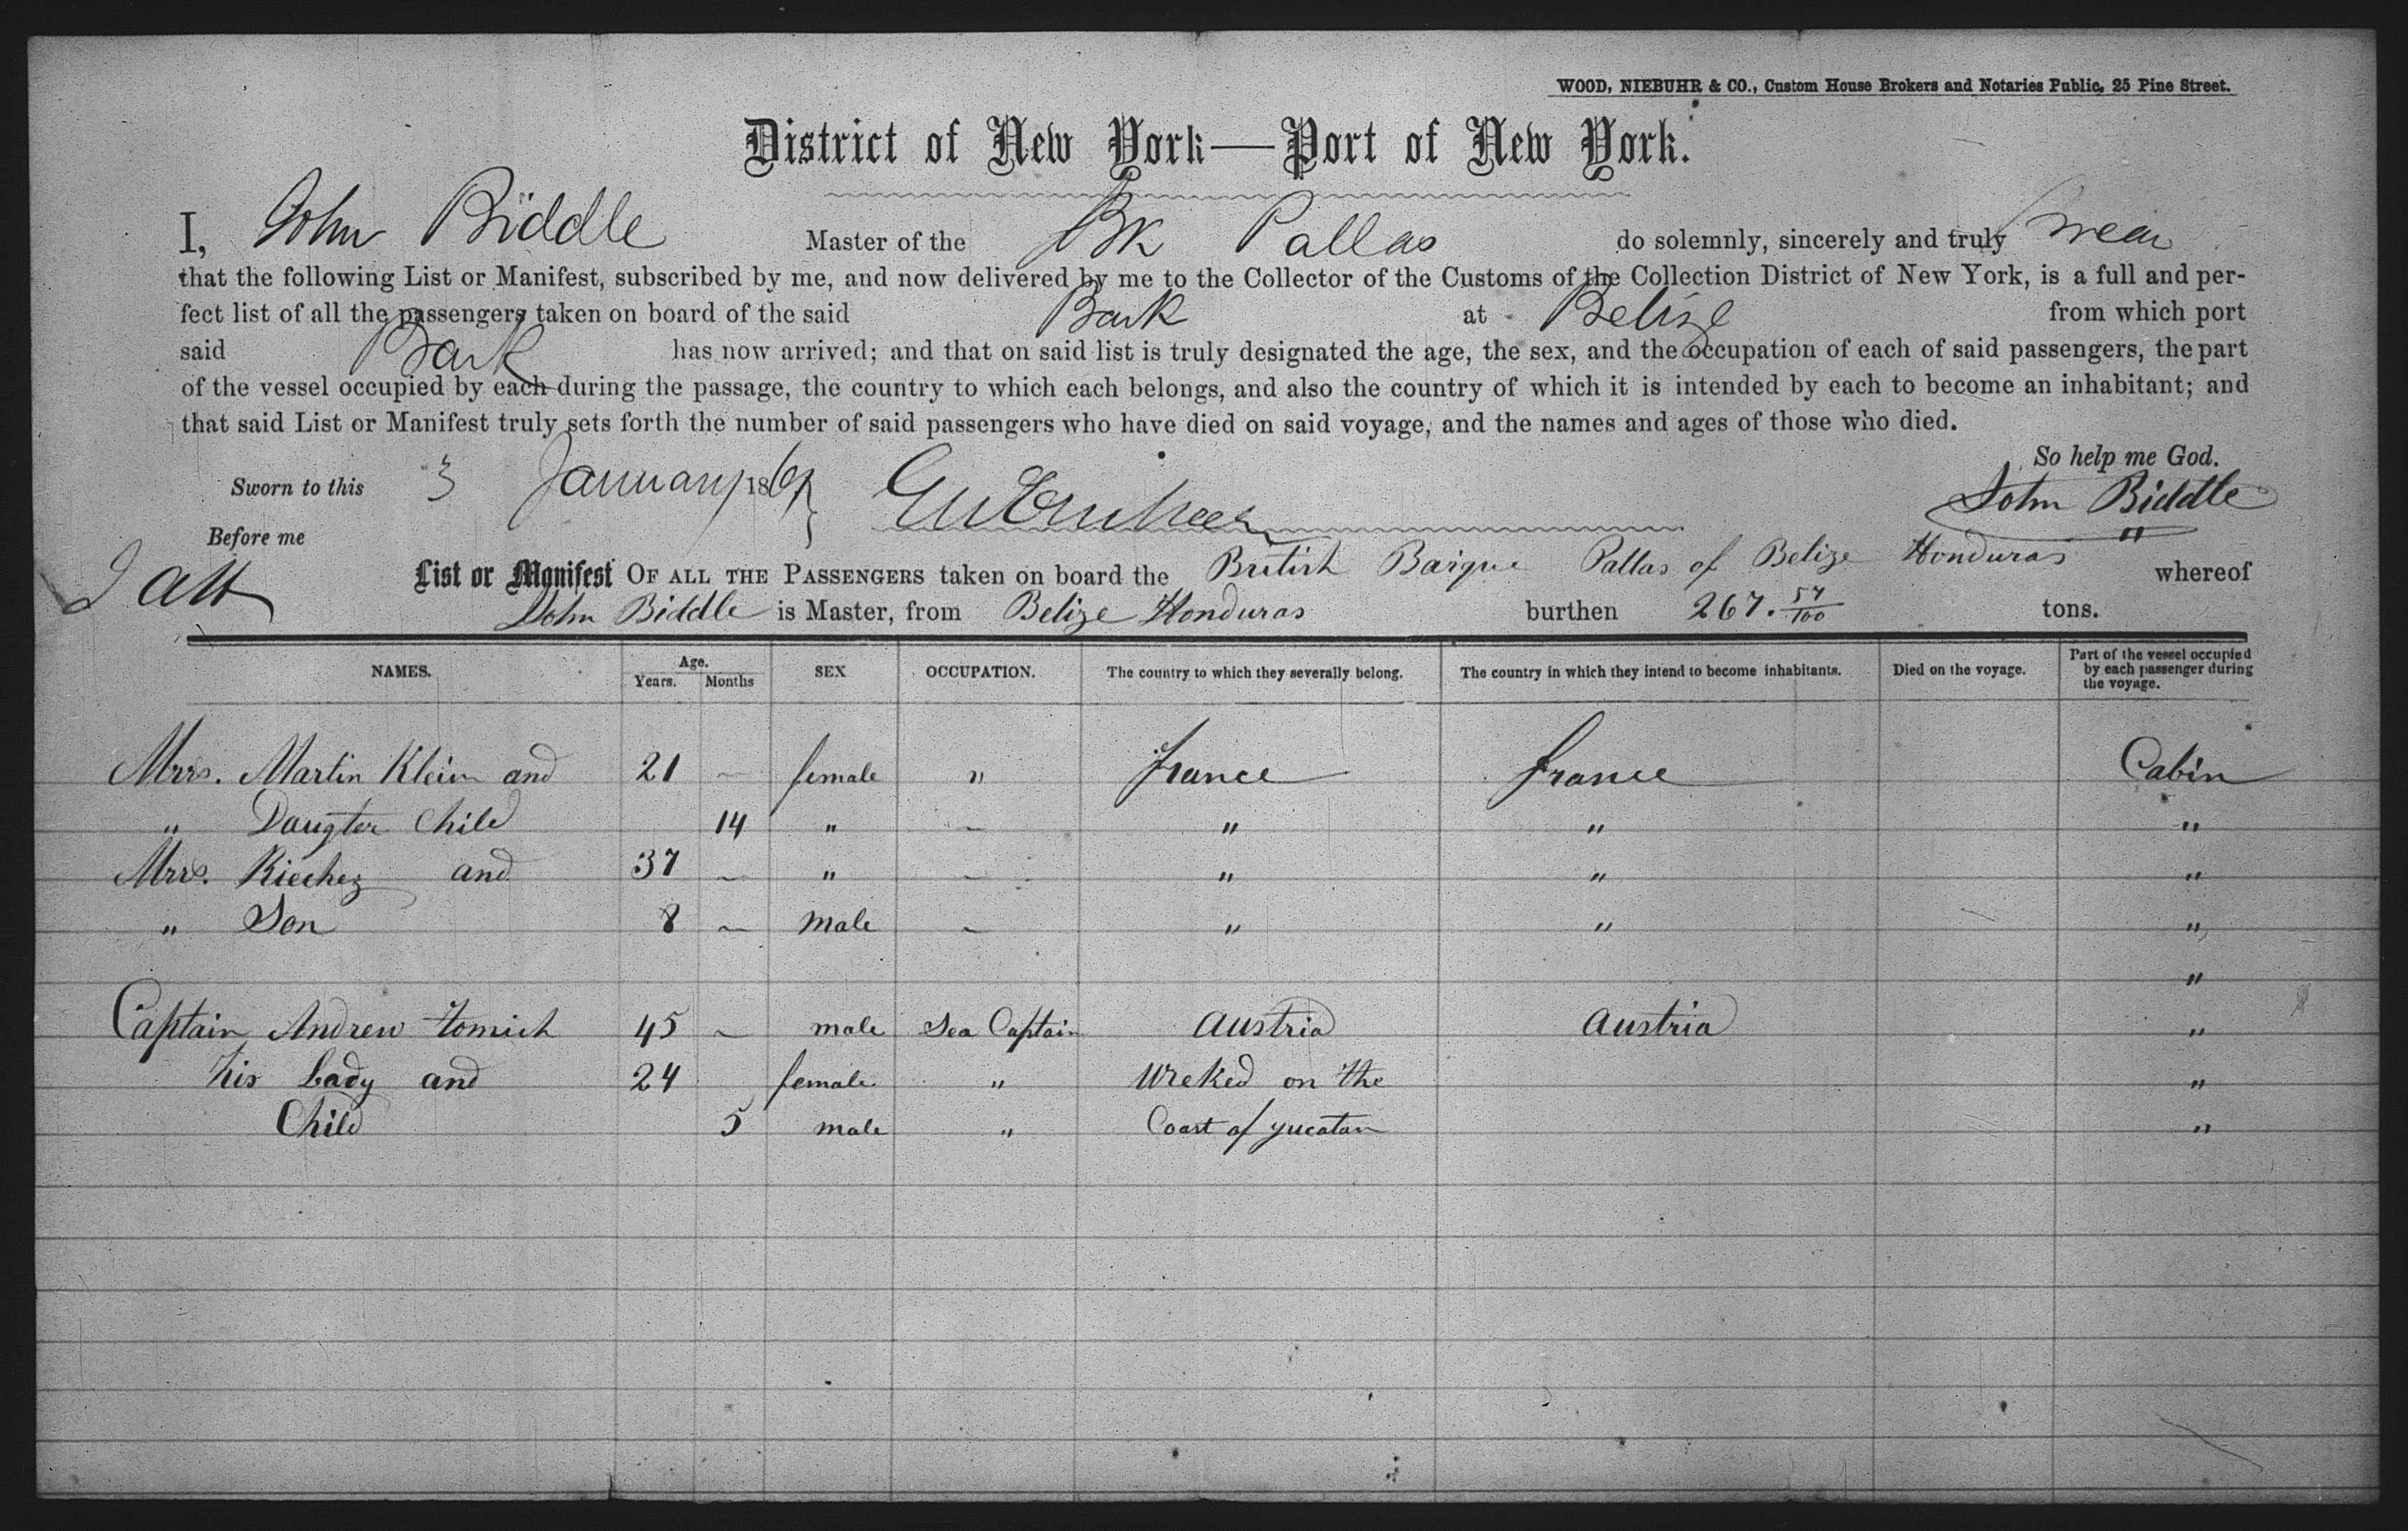 WOOD, NIEBUHR & CO., Custom House Brokers and Notaries Public, 25 Pine Street.
District of New York—Port of New York.
I, John Biddle Master of the Bk Pallas do solemnly, sincerely and truly swear
that the following List or Manifest, subscribed by me, and now delivered by me to the Collector of the Customs of the Collection District of New York, is a full and per-
fect list of all the passengers taken on board of the said Bark at Belize from which port
said Bark has now arrived; and that on said list is truly designated the age, the sex, and the occupation of each of said passengers, the part
of the vessel occupied by each during the passage, the country to which each belongs, and also the country of which it is intended by each to become an inhabitant; and
that said List or Manifest truly sets forth the number of said passengers who have died on said voyage, and the names and ages of those who died.
So help me God.
Sworn to this 3 January 186 John Biddle
Before me
List or Manifest OF ALL THE PASSENGERS taken on board the British Barque Pallas of Belize Honduras whereof
John Biddle is Master, from Belize Honduras burthen 267. 57/100 tons.
NAMES. Age. Years. Months SEX OCCUPATION. The country to which they severally belong. The country in which they intend to become inhabitants. Died on the voyage. Part of the vessel occupied by each passenger during the voyage.
Mrrs. Martin Klein and 21 ~ female " france france Cabin
" Daugter Child 14 " ~ " " "
Mrrs. Riechez and 37 ~ " ~ " " "
" Son 8 ~ male ~ " " "
"
Captain Andrew tomich 45 ~ male Sea Captain Austria Austria "
his Lady and 24 female " Wreked on the "
Child 5 male " Coast of yucatan "